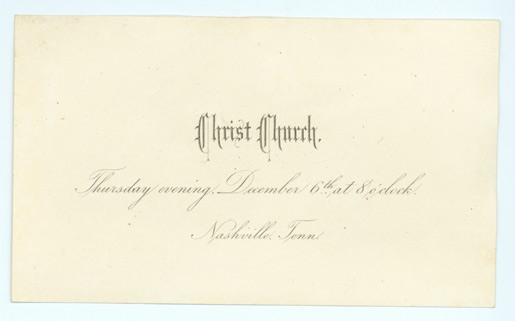 Christ Church.
Thursday evening, December 6th, at 8 o'clock.
Nashville, Tenn.